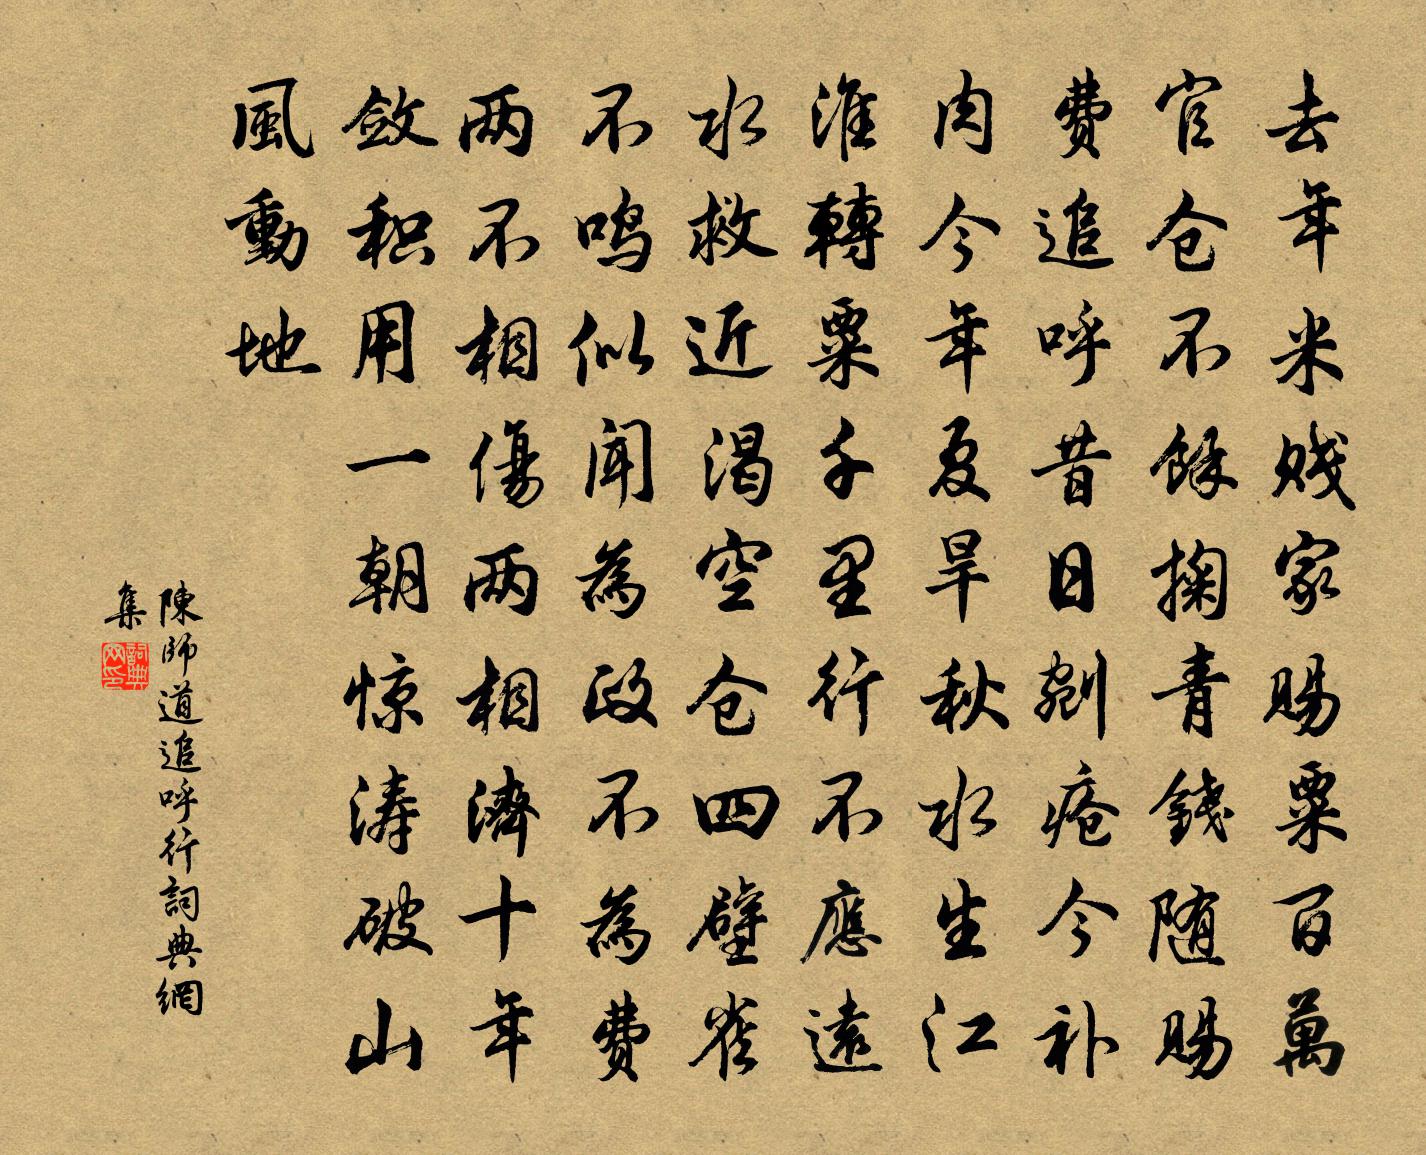 去年米贱家赐粟百萬
官仓不餘掬青錢随赐
费追呼昔日剜疮今补
肉今年夏旱秋水生江
淮轉粟千里行不應遠
水救近渴空仓四壁雀
不鸣似闻為政不為费
两不相傷两相濟十年
敛积用一朝惊涛破山
風動地
陳師道追呼行詞典網
集
詞典网印